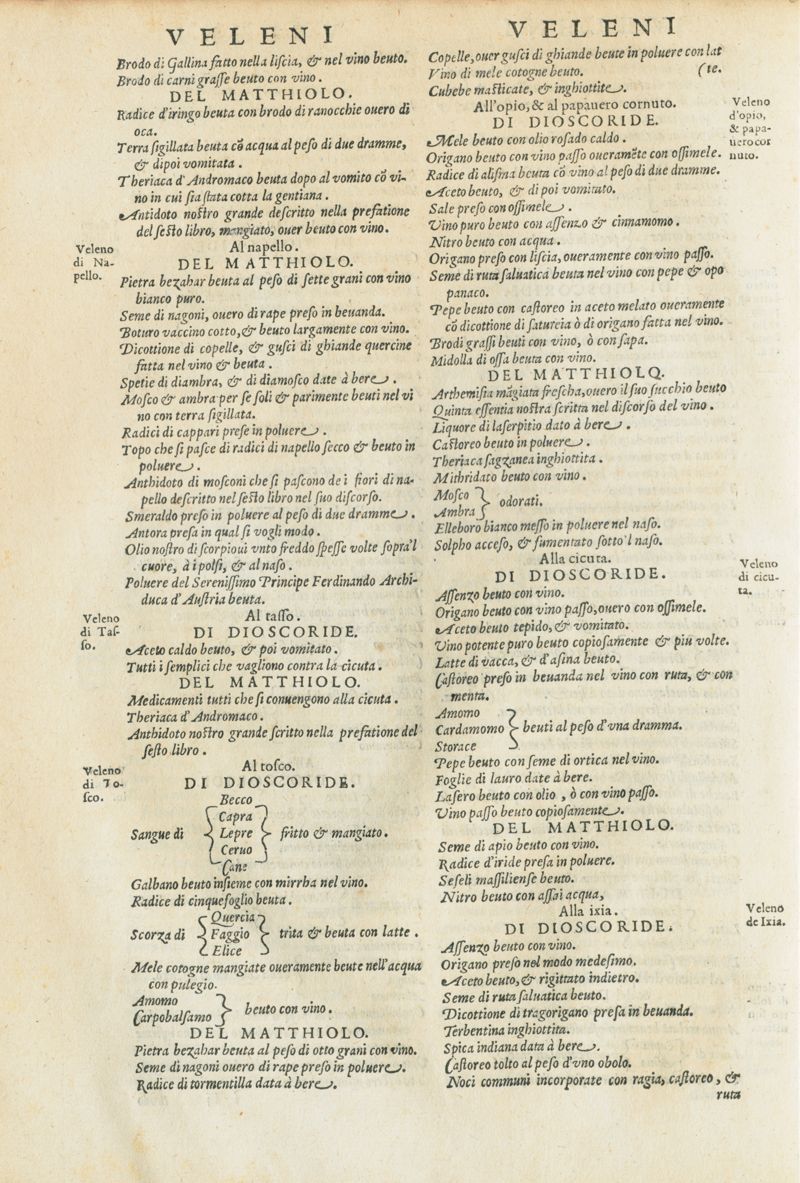 VELENI
Brodo di Gallina fatto nella liſcia, & nel vino beuto.
Brodo di carni graſſe beuto con vino.
DEL MATTHIOLO.
Radice d'iringo beuta con brodo di ranocchie ouero di
oca.
Terra ſigillata beuta cõ acqua al peſo di due dramme,
& dipoi vomitata.
Theriaca d'Andromaco beuta dopo al vomito cõ vi-
no in cui ſia ſtata cotta la gentiana.
Antidoto noſtro grande deſcritto nella prefatione
del ſeſto libro, mangiato, ouer beuto con vino.
Veleno
di Na-
pello.
Al napello.
DEL MATTHIOLO.
Pietra bezahar beuta al peſo di ſette grani con vino
bianco puro.
Seme di nagoni, ouero di rape preſo in beuanda.
Boturo vaccino cotto, & beuto largamente con vino.
Dicottione di copelle, & guſci di ghiande quercine
fatta nel vino & beuta.
Spetie di diambra, & di diamoſco date à bere.
Moſco & ambra per ſe ſoli & parimente beuti nel vi
no con terra ſigillata.
Radici di cappari preſe in poluere.
Topo che ſi paſce di radici di napello ſecco & beuto in
poluere.
Anthidoto di moſconi che ſi paſcono de i fiori di na-
pello deſcritto nel ſeſto libro nel ſuo diſcorſo.
Smeraldo preſo in poluere al peſo di due dramme.
Antora preſa in qual ſi vogli modo.
Olio noſtro di ſcorpioui vnto freddo ſpeſſe volte ſopra'l
cuore, à i polſi, & al naſo.
Poluere del Sereniſſimo Principe Ferdinando Archi-
duca d'Auſtria beuta.
Veleno
di Taſ-
ſo.
Al taſſo.
DI DIOSCORIDE.
Aceto caldo beuto, & poi vomitato.
Tutti i ſemplici che vagliono contra la cicuta.
DEL MATTHIOLO.
Medicamenti tutti che ſi conuengono alla cicuta.
Theriaca d'Andromaco.
Anthidoto noſtro grande ſcritto nella prefatione del
ſeſto libro.
Veleno
di To-
ſco.
Al toſco.
DI DIOSCORIDE.
Becco
Capra
Sangue di Lepre fritto & mangiato.
Ceruo
Cane
Galbano beuto inſieme con mirrha nel vino.
Radice di cinquefoglio beuta.
Quercia
Scorza di Faggio trita & beuta con latte.
Elice
Mele cotogne mangiate oueramente beute nell'acqua
con pulegio.
Amomo
Carpobalſamo beuto con vino.
DEL MATTHIOLO.
Pietra bezahar beuta al peſo di otto grani con vino.
Seme di nagoni ouero di rape preſo in poluere.
Radice di tormentilla data à bere.
VELENI
Copelle, ouer guſci di ghiande beute in poluere con lat
Vino di mele cotogne beuto. (te.
Cubebe maſticate, & inghiottite.
Veleno
d'opio,
& papa-
uero cor
nuto.
All'opio, & al papauero cornuto.
DI DIOSCORIDE.
Mele beuto con olio roſado caldo.
Origano beuto con vino paſſo oueramẽte con oſſimele.
Radice di aliſma beuta cõ vino al peſo di due dramme.
Aceto beuto, & di poi vomitato.
Sale preſo con oſſimele.
Vino puro beuto con aſſenzo & cinnamomo.
Nitro beuto con acqua.
Origano preſo con liſcia, oueramente con vino paſſo.
Seme di ruta ſaluatica beuta nel vino con pepe & opo
panaco.
Pepe beuto con caſtoreo in aceto melato oueramente
cõ dicottione di ſatureia ò di origano fatta nel vino.
Brodi graſſi beuti con vino, ò con ſapa.
Midolla di oſſa beuta con vino.
DEL MATTHIOLO.
Arthemiſia mãgiata freſcha, ouero il ſuo ſucchio beuto
Quinta eſſentia noſtra ſcritta nel diſcorſo del vino.
Liquore di laſerpitio dato à bere.
Caſtoreo beuto in poluere.
Theriaca ſagzanea inghiottita.
Mithridato beuto con vino.
Moſco
Ambra odorati.
Elleboro bianco meſſo in poluere nel naſo.
Solpho acceſo, & fumentato ſotto'l naſo.
Veleno
di cicu-
ta.
Alla cicuta.
DI DIOSCORIDE.
Aſſenzo beuto con vino.
Origano beuto con vino paſſo, ouero con oſſimele.
Aceto beuto tepido, & vomitato.
Vino potente puro beuto copioſamente & più volte.
Latte di vacca, & d'aſina beuto.
Caſtoreo preſo in beuanda nel vino con ruta, & con
menta.
Amomo
Cardamomo beuti al peſo d'vna dramma.
Storace
Pepe beuto con ſeme di ortica nel vino.
Foglie di lauro date à bere.
Laſero beuto con olio, ò con vino paſſo.
Vino paſſo beuto copioſamente.
DEL MATTHIOLO.
Seme di apio beuto con vino.
Radice d'iride preſa in poluere.
Seſeli maſſilienſe beuto.
Nitro beuto con aſſai acqua,
Veleno
de Ixia.
Alla ixia.
DI DIOSCORIDE.
Aſſenzo beuto con vino.
Origano preſo nel modo medeſimo.
Aceto beuto, & rigittato indietro.
Seme di ruta ſaluatica beuto.
Dicottione di tragorigano preſa in beuanda.
Terbentina inghiottita.
Spica indiana data à bere.
Caſtoreo tolto al peſo d'vno obolo.
Noci communi incorporate con ragia, caſtoreo, &
ruta